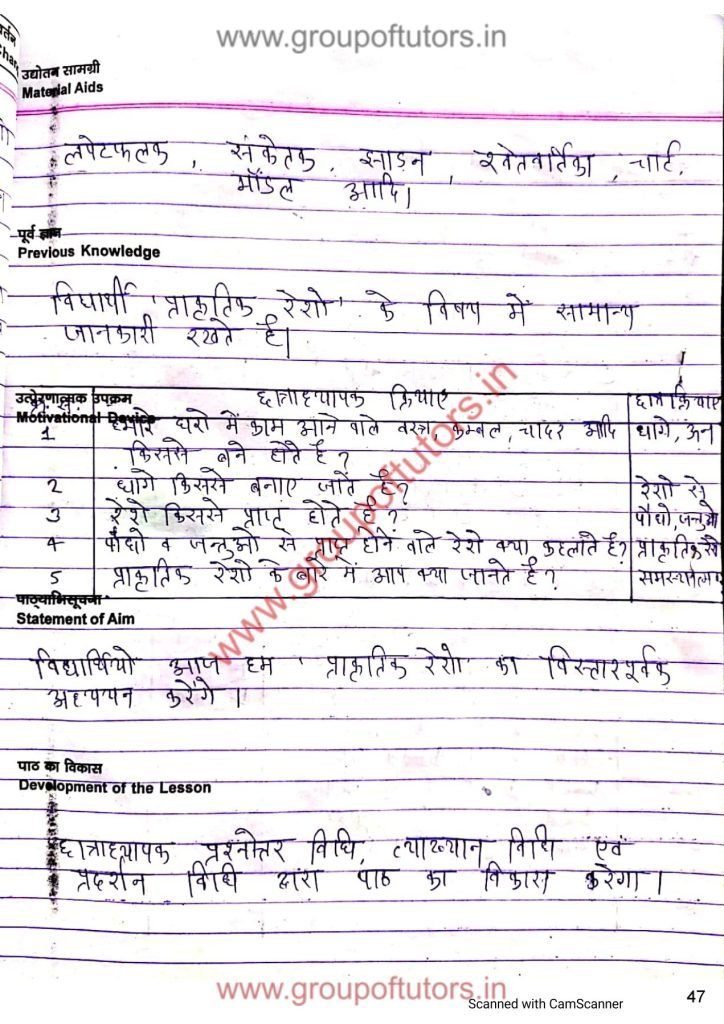 www.groupoftutors.in
उद्योतन सामग्री
Material Aids
लपेटफलक, संकेतक, झाडन, श्वेतवर्तिका, चार्ट,
मॉडल आदि।
पूर्व ज्ञान
Previous Knowledge
विधार्थी 'प्राकृतिक रेशो' के विषय में सामान्य
जानकारी रखते है।
उत्प्रेरणात्मक उपक्रम छात्राध्यापक क्रियाए
Motivational Device
1 घरो में काम आने वाले वस्त्र, कम्बल, चादर आदि धागे, ऊन
किससे बने होते है?
2 धागे किससे बनाए जाते है? रेशो से
3 रेशे किससे प्राप्त होते है? पौधो, जन्तुओ
4 पौधो व जन्तुओ से प्राप्त होने वाले रेशो क्या कहलाते है? प्राकृतिक
5 प्राकृतिक रेशो के बारे में आप क्या जानते है?
पाठ्याभिसूचना
Statement of Aim
विधार्थियो आज हम 'प्राकृतिक रेशो' का विस्तारपूर्वक
अध्ययन करेंगे।
पाठ का विकास
Development of the Lesson
छात्राध्यापक प्रश्नोत्तर विधि, व्याख्यान विधि एवं
प्रदर्शन विधि द्वारा पाठ का विकास करेगा।
www.groupoftutors.in
www.groupoftutors.in
Scanned with CamScanner
47